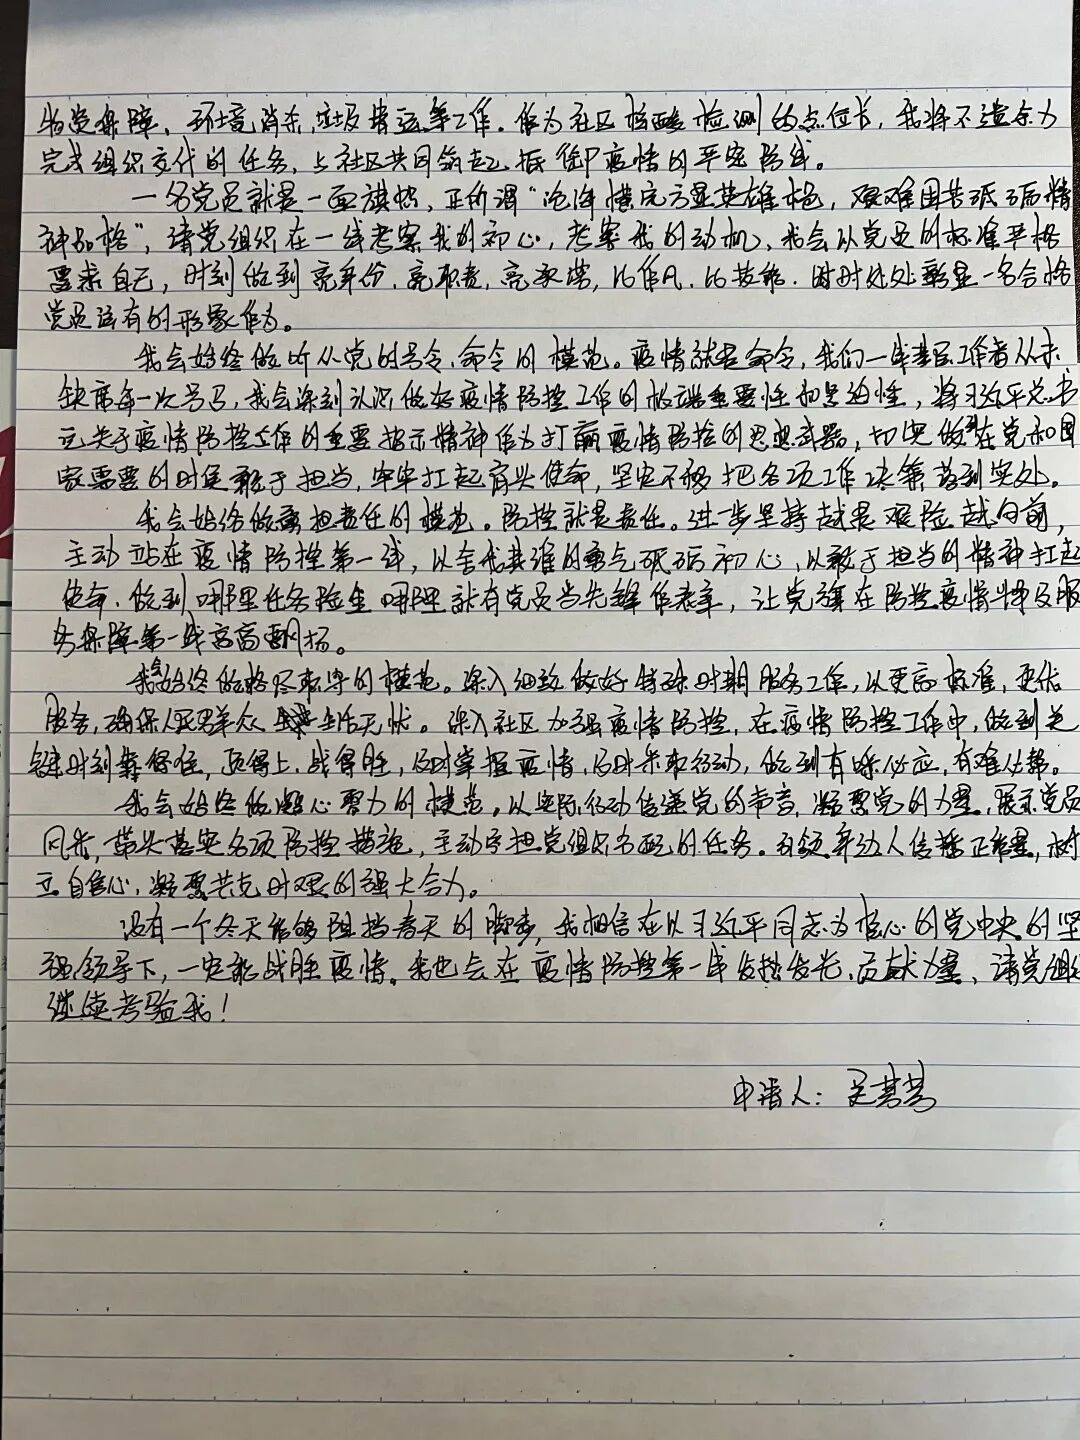 物资保障、环境消杀、垃圾清运等工作。作为社区核酸检测的点位长，我将不遗余力
完成组织交代的任务，与社区共同筑起抵御疫情的牢固防线。
一名党员就是一面旗帜，正所谓“沧海横流方显英雄本色，艰难困苦砥砺精
神品格”，请党组织在一线考察我的初心，考察我的动机，我会以党员的标准严格
要求自己，时刻做到亮身份、亮职责、亮承诺，比作风、比技能，时时处处彰显一名合格
党员该有的形象作为。
我会始终做听从党的号令、命令的模范。疫情就是命令，我们一线基层工作者从未
缺席每一次号召，我会深刻认识做好疫情防控工作的极端重要性和紧迫性，将习近平总书
记关于疫情防控工作的重要指示精神作为打赢疫情防控的思想武器，切实做到在党和国
家需要的时候敢于担当，牢牢扛起肩头使命，坚定不移把各项工作决策落到实处。
我会始终做勇担责任的模范。防控就是责任。进一步坚持越是艰险越向前，
主动站在疫情防控第一线，以舍我其谁的勇气砥砺初心，以敢于担当的精神扛起
使命，做到哪里任务险重哪里就有党员当先锋作表率，让党旗在防控疫情斗争及服
务保障第一线高高飘扬。
我会始终做恪尽职守的模范。深入细致做好特殊时期服务工作，以更高标准，更优
服务，确保人民群众生活无忧。深入社区加强疫情防控，在疫情防控工作中，做到关
键时刻靠得住，顶得上，战得胜，及时掌握疫情，及时采取行动，做到有呼必应，有难必帮。
我会始终做凝心聚力的模范。以实际行动传递党的声音，凝聚党的力量，展示党员
风采，带头落实各项防控措施，主动承担党组织分配的任务。引领身边人传播正能量，树
立自信心，凝聚共克时艰的强大合力。
没有一个冬天能够阻挡春天的脚步，我相信在以习近平同志为核心的党中央的坚
强领导下，一定能战胜疫情。我也会在疫情防控第一线发热发光、贡献力量，请党组织
继续考验我！
申请人：